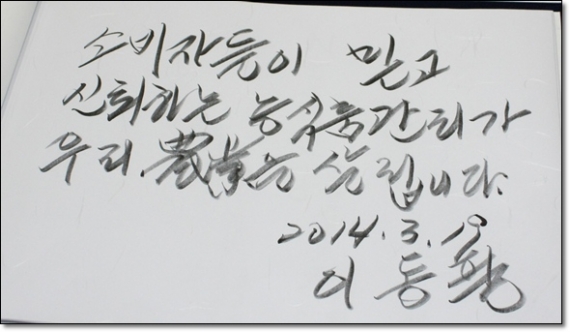 소비자들이 믿고
신뢰하는 농식품관리가
우리 農業을 살립니다.
2014. 3. 19
이동필